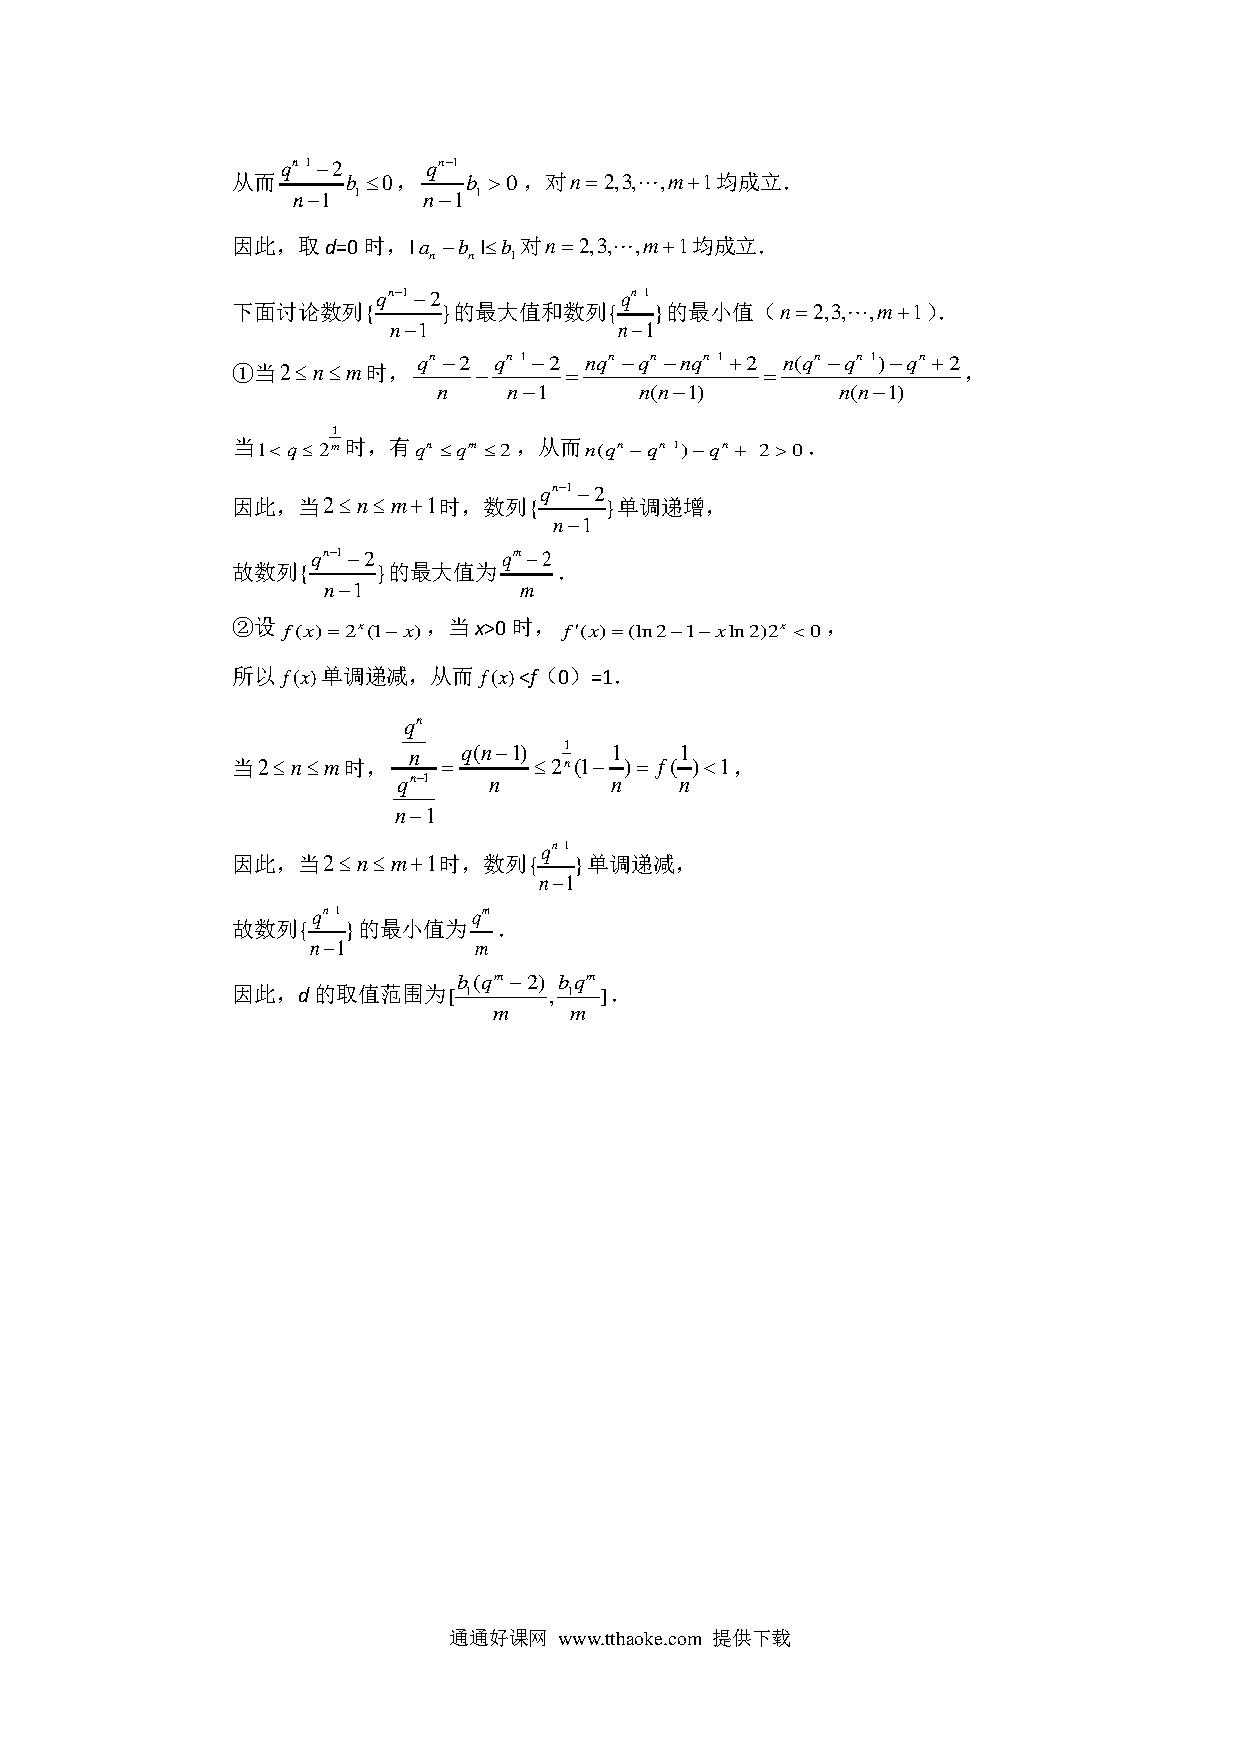 从而 $\frac{q^{n-1}-2}{n-1}b_1 \le 0$， $\frac{q^{n-1}}{n-1}b_1 > 0$，对 $n=2,3,\cdots,m+1$ 均成立．
因此，取 d=0 时，$|a_n-b_n| \le b_1$ 对 $n=2,3,\cdots,m+1$ 均成立．
下面讨论数列 $\{\frac{q^{n-1}-2}{n-1}\}$ 的最大值和数列 $\{\frac{q^{n-1}}{n-1}\}$ 的最小值（$n=2,3,\cdots,m+1$）．
①当 $2 \le n \le m$ 时，$\frac{q^n-2}{n}-\frac{q^{n-1}-2}{n-1}=\frac{nq^n-q^n-nq^{n-1}+2}{n(n-1)}=\frac{n(q^n-q^{n-1})-q^n+2}{n(n-1)}$，
当 $1<q \le 2^{\frac{1}{m}}$ 时，有 $q^n \le q^m \le 2$，从而 $n(q^n-q^{n-1})-q^n+2>0$．
因此，当 $2 \le n \le m+1$ 时，数列 $\{\frac{q^{n-1}-2}{n-1}\}$ 单调递增，
故数列 $\{\frac{q^{n-1}-2}{n-1}\}$ 的最大值为 $\frac{q^m-2}{m}$．
②设 $f(x)=2^x(1-x)$，当 x>0 时，$f'(x)=(\ln 2-1-x\ln 2)2^x<0$，
所以 $f(x)$ 单调递减，从而 $f(x)$<f（0）=1．
当 $2 \le n \le m$ 时，$\frac{\frac{q^n}{n}}{\frac{q^{n-1}}{n-1}}=\frac{q(n-1)}{n} \le 2^{\frac{1}{n}}(1-\frac{1}{n})=f(\frac{1}{n})<1$，
因此，当 $2 \le n \le m+1$ 时，数列 $\{\frac{q^{n-1}}{n-1}\}$ 单调递减，
故数列 $\{\frac{q^{n-1}}{n-1}\}$ 的最小值为 $\frac{q^m}{m}$．
因此，d 的取值范围为 $[\frac{b_1(q^m-2)}{m},\frac{b_1q^m}{m}]$．
通通好课网 www.tthaoke.com 提供下载